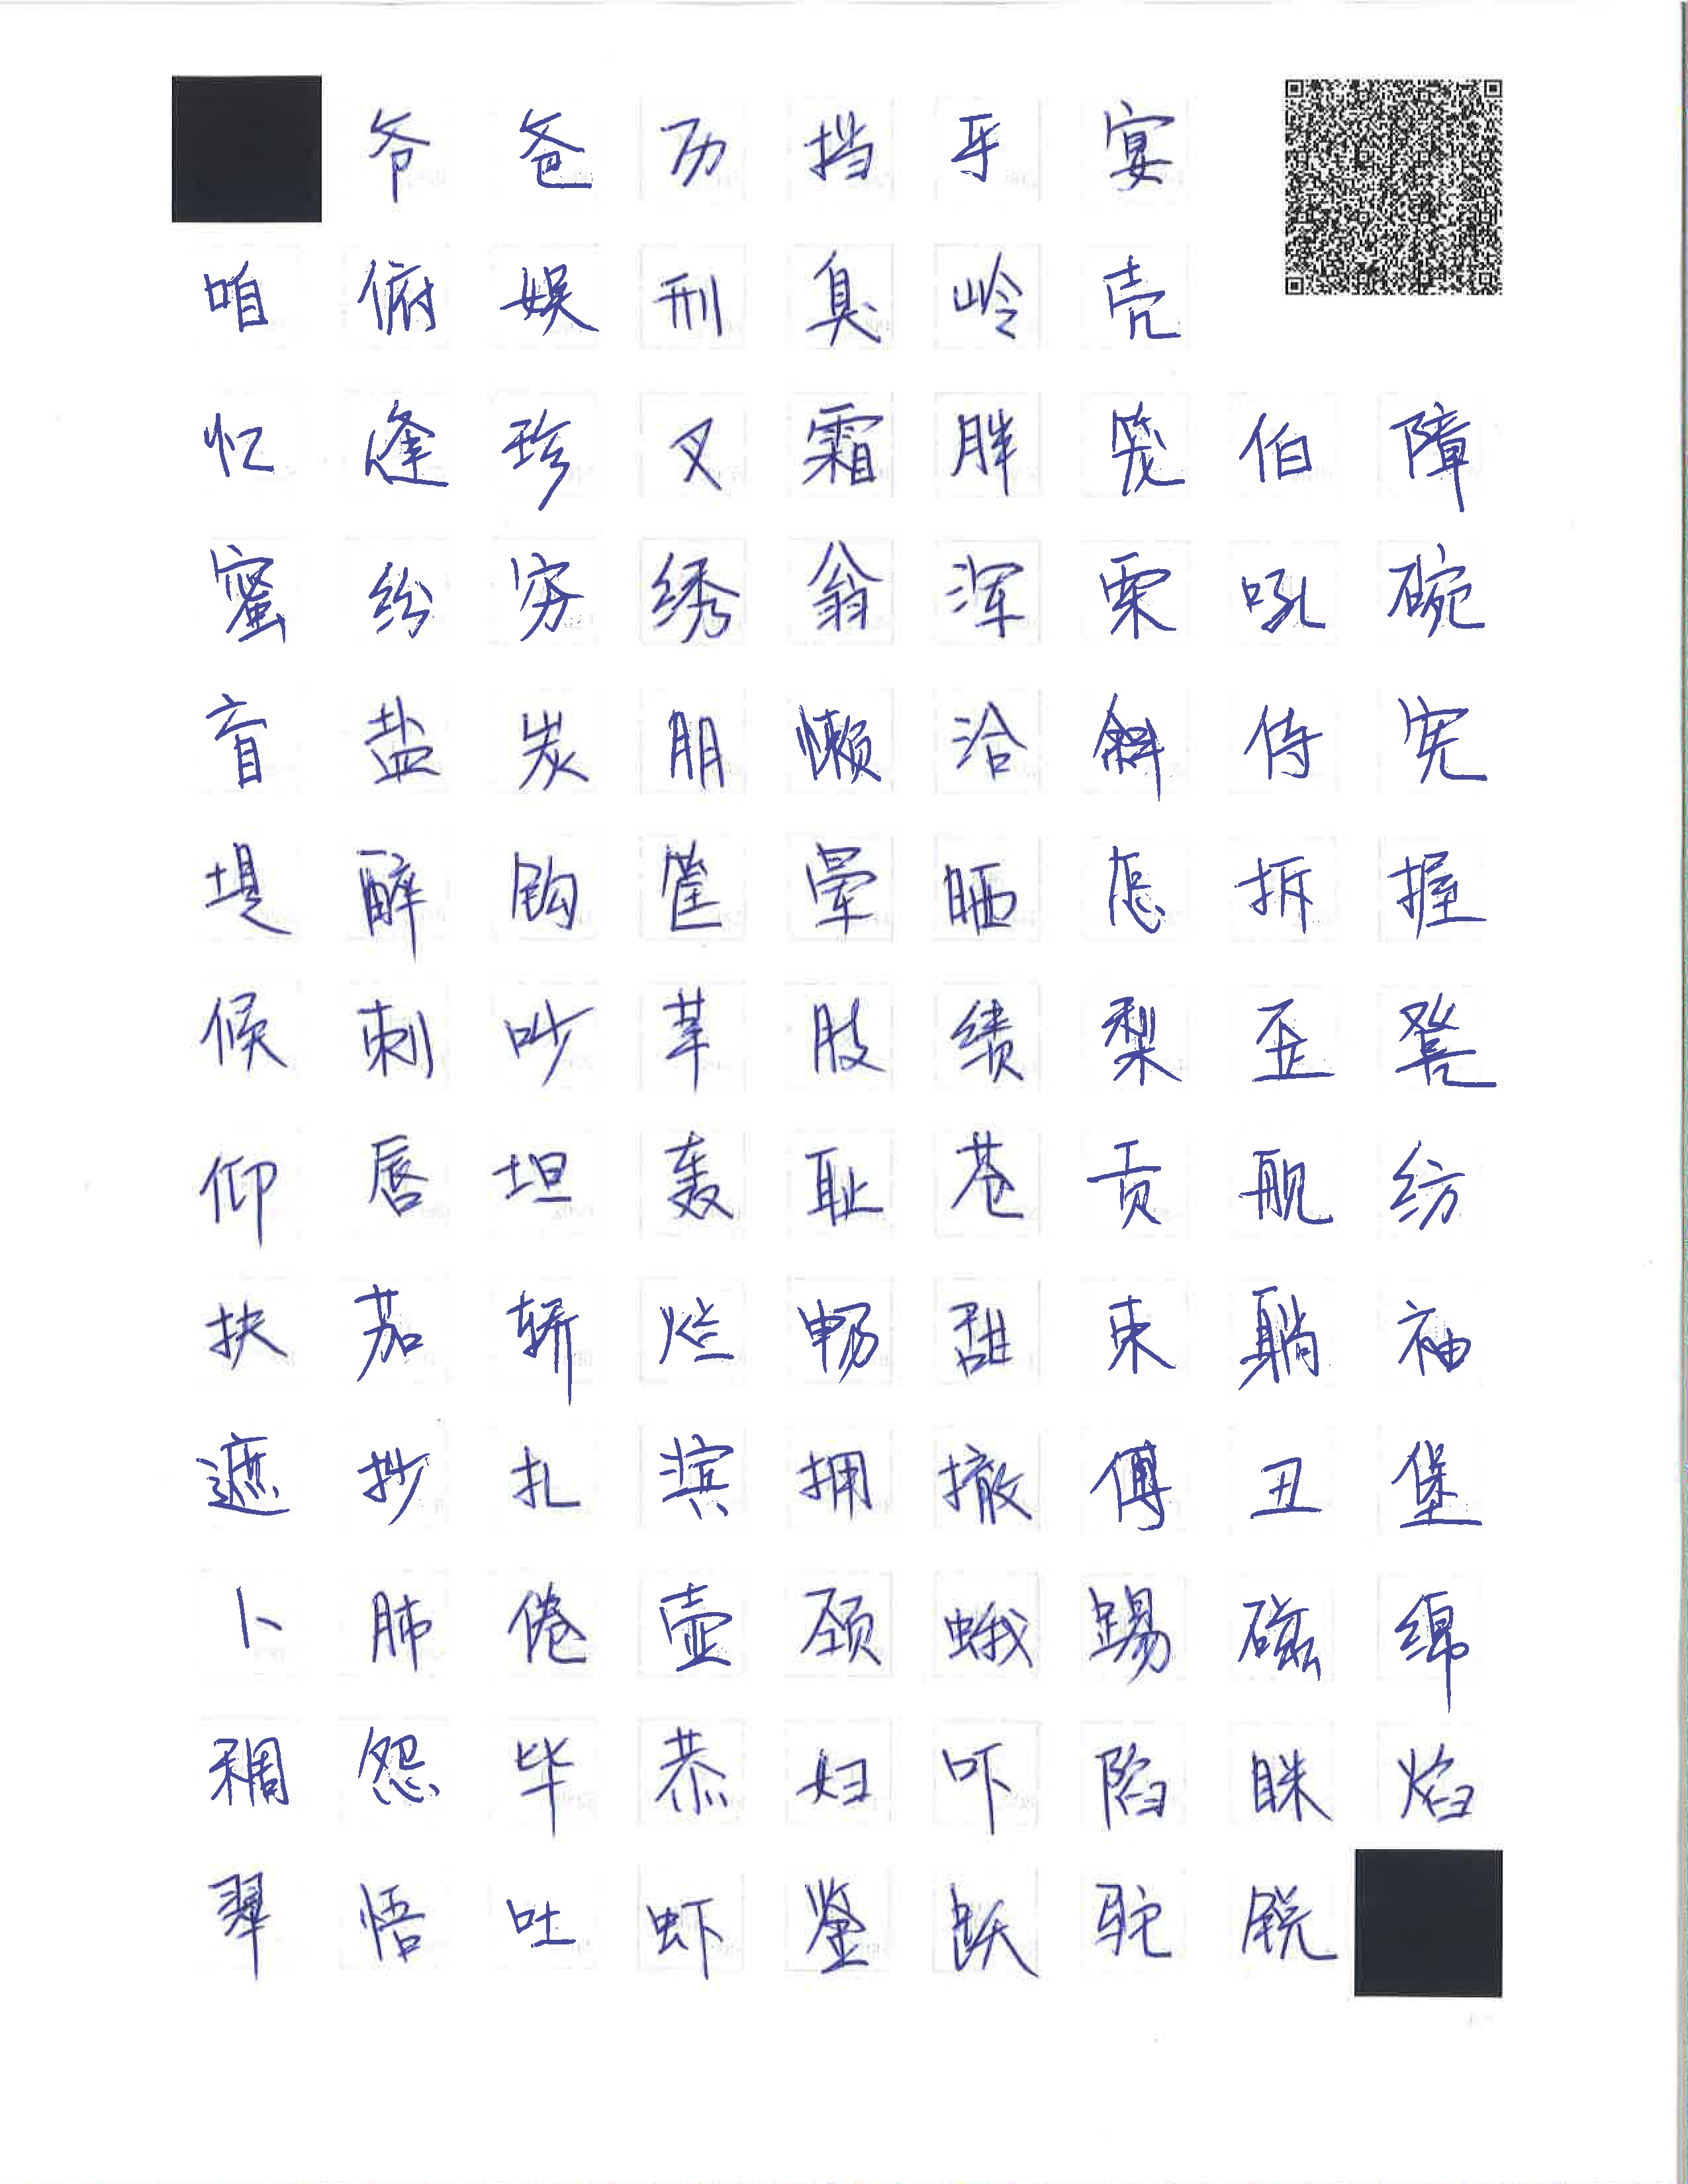 爷 爸 历 挡 牙 宴
咱 俯 娱 刑 臭 岭 壳
忆 逢 珍 叉 霜 胖 笼 伯 障
蜜 纷 穷 绣 翁 浑 栗 吼 碗
盲 盐 炭 朋 懒 洽 斜 侍 宪
堤 醉 钩 筐 晕 晒 怎 拆 握
候 刺 吵 莘 肢 绩 梨 歪 凳
仰 唇 坦 轰 耻 苍 贡 舰 纺
扶 茄 轿 烂 畅 甜 束 躺 袖
遮 抄 扎 滨 拥 撤 傅 丑 堡
卜 肺 倦 壶 颈 蛾 踢 磁 绵
稠 怨 毕 恭 妇 吓 陷 眯 焰
翠 悟 吐 虾 鉴 跃 驼 锐